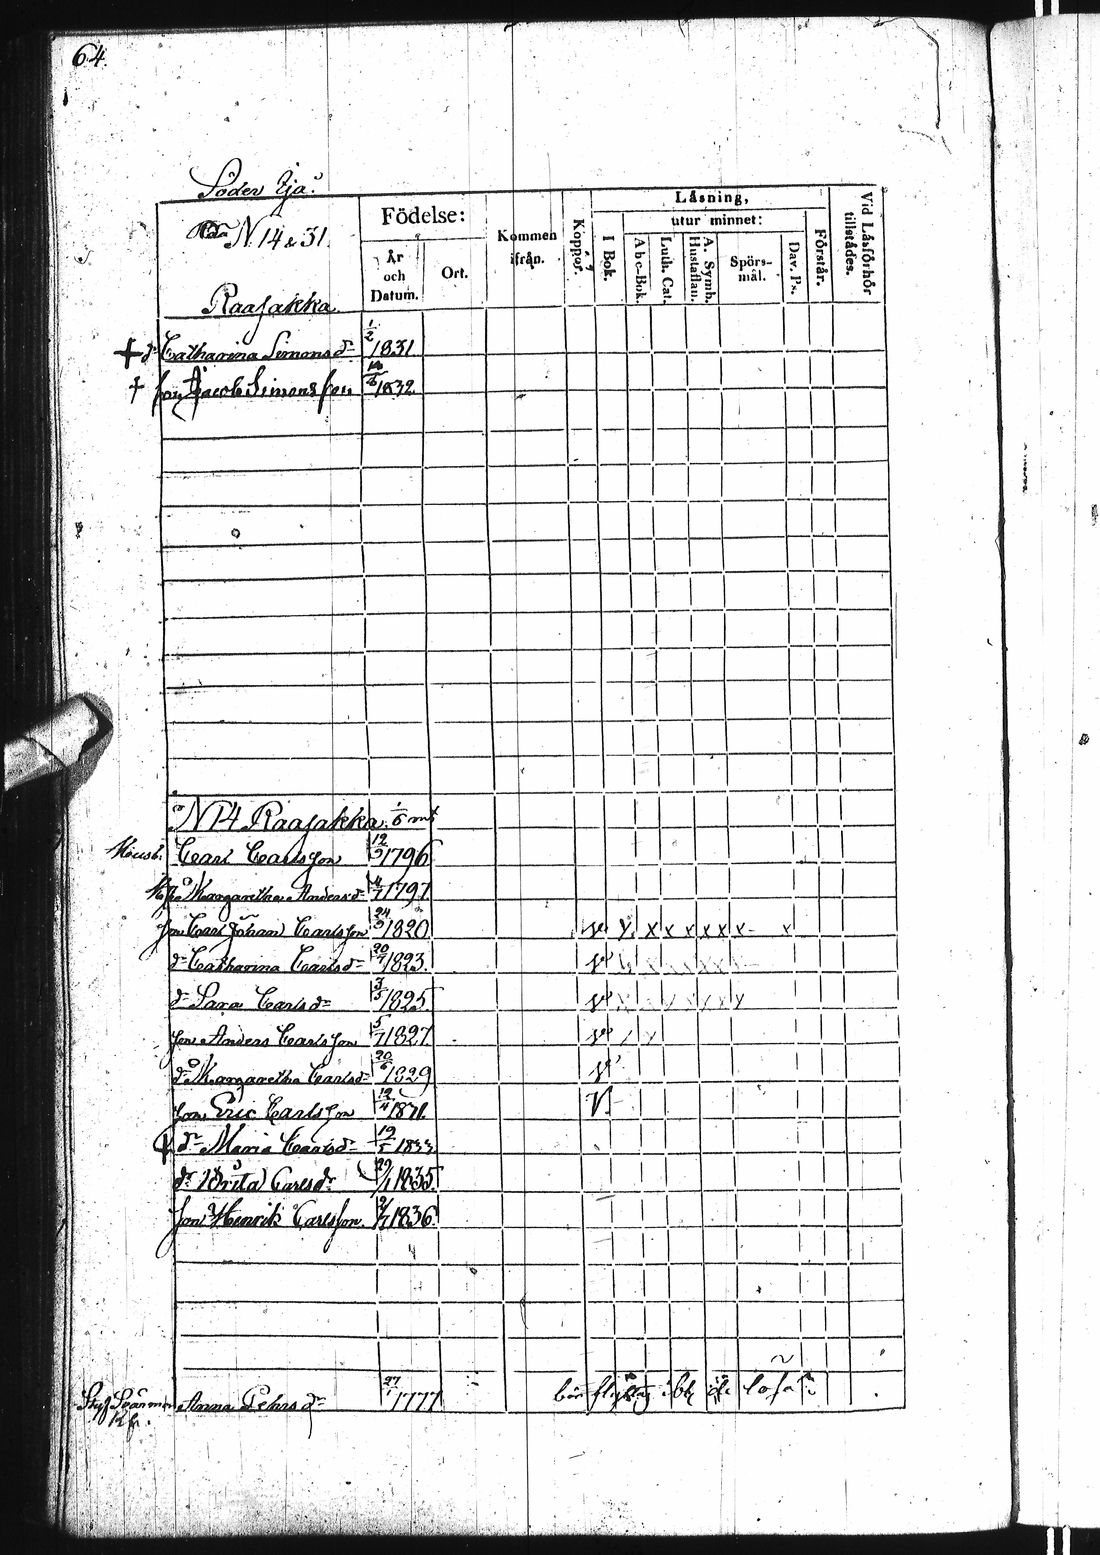 64.
Söder Eja:
N. 14 & 31.
Raajakka.
Födelse:
År
och
Datum.
Ort.
Kommen
ifrån.
Koppor.
Läsning,
utur minnet:
I Bok.
Abc-Bok.
Luth. Cat.
A. Symb.
Hustaflan.
Spörs-
mål.
Dav. Ps.
Förstår.
Vid Läsförhör
tillstädes.
+ dr Catharina Simons dr 1/2 1831
+ Son Jacob Simons son 1832
N 14 Raajakka. 1/6 mt
Husb. Carl Carlsson 12/9 1796
Margaretha Anders dr 1797
Son Carl Johan Carlsson 24/9 1820 x x x x x x x
dr Catharina Carls dr 20/7 1823.
dr Sara Carls dr 3/5 1825
Son Anders Carlsson 5/7 1827
dr Margaretha Carls dr 20/6 1829
Son Eric Carlsson 12/4 1831.
dr Maria Carls dr 19/5 1833
dr Brita Carls dr 29/1 1835
Son Henrik Carlsson 1836
Anna Pehrs dr 27/1 1777